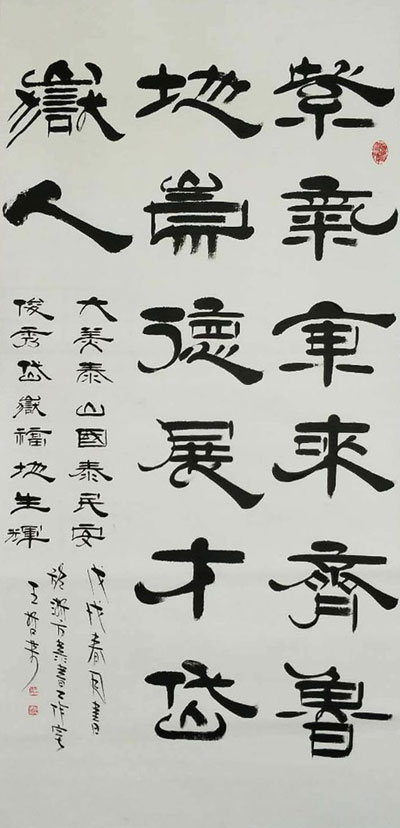 紫氣東來齊魯
地崇德展才岱
嶽人
大美泰山國泰民安
俊秀岱嶽福地生輝
戊戌春月書